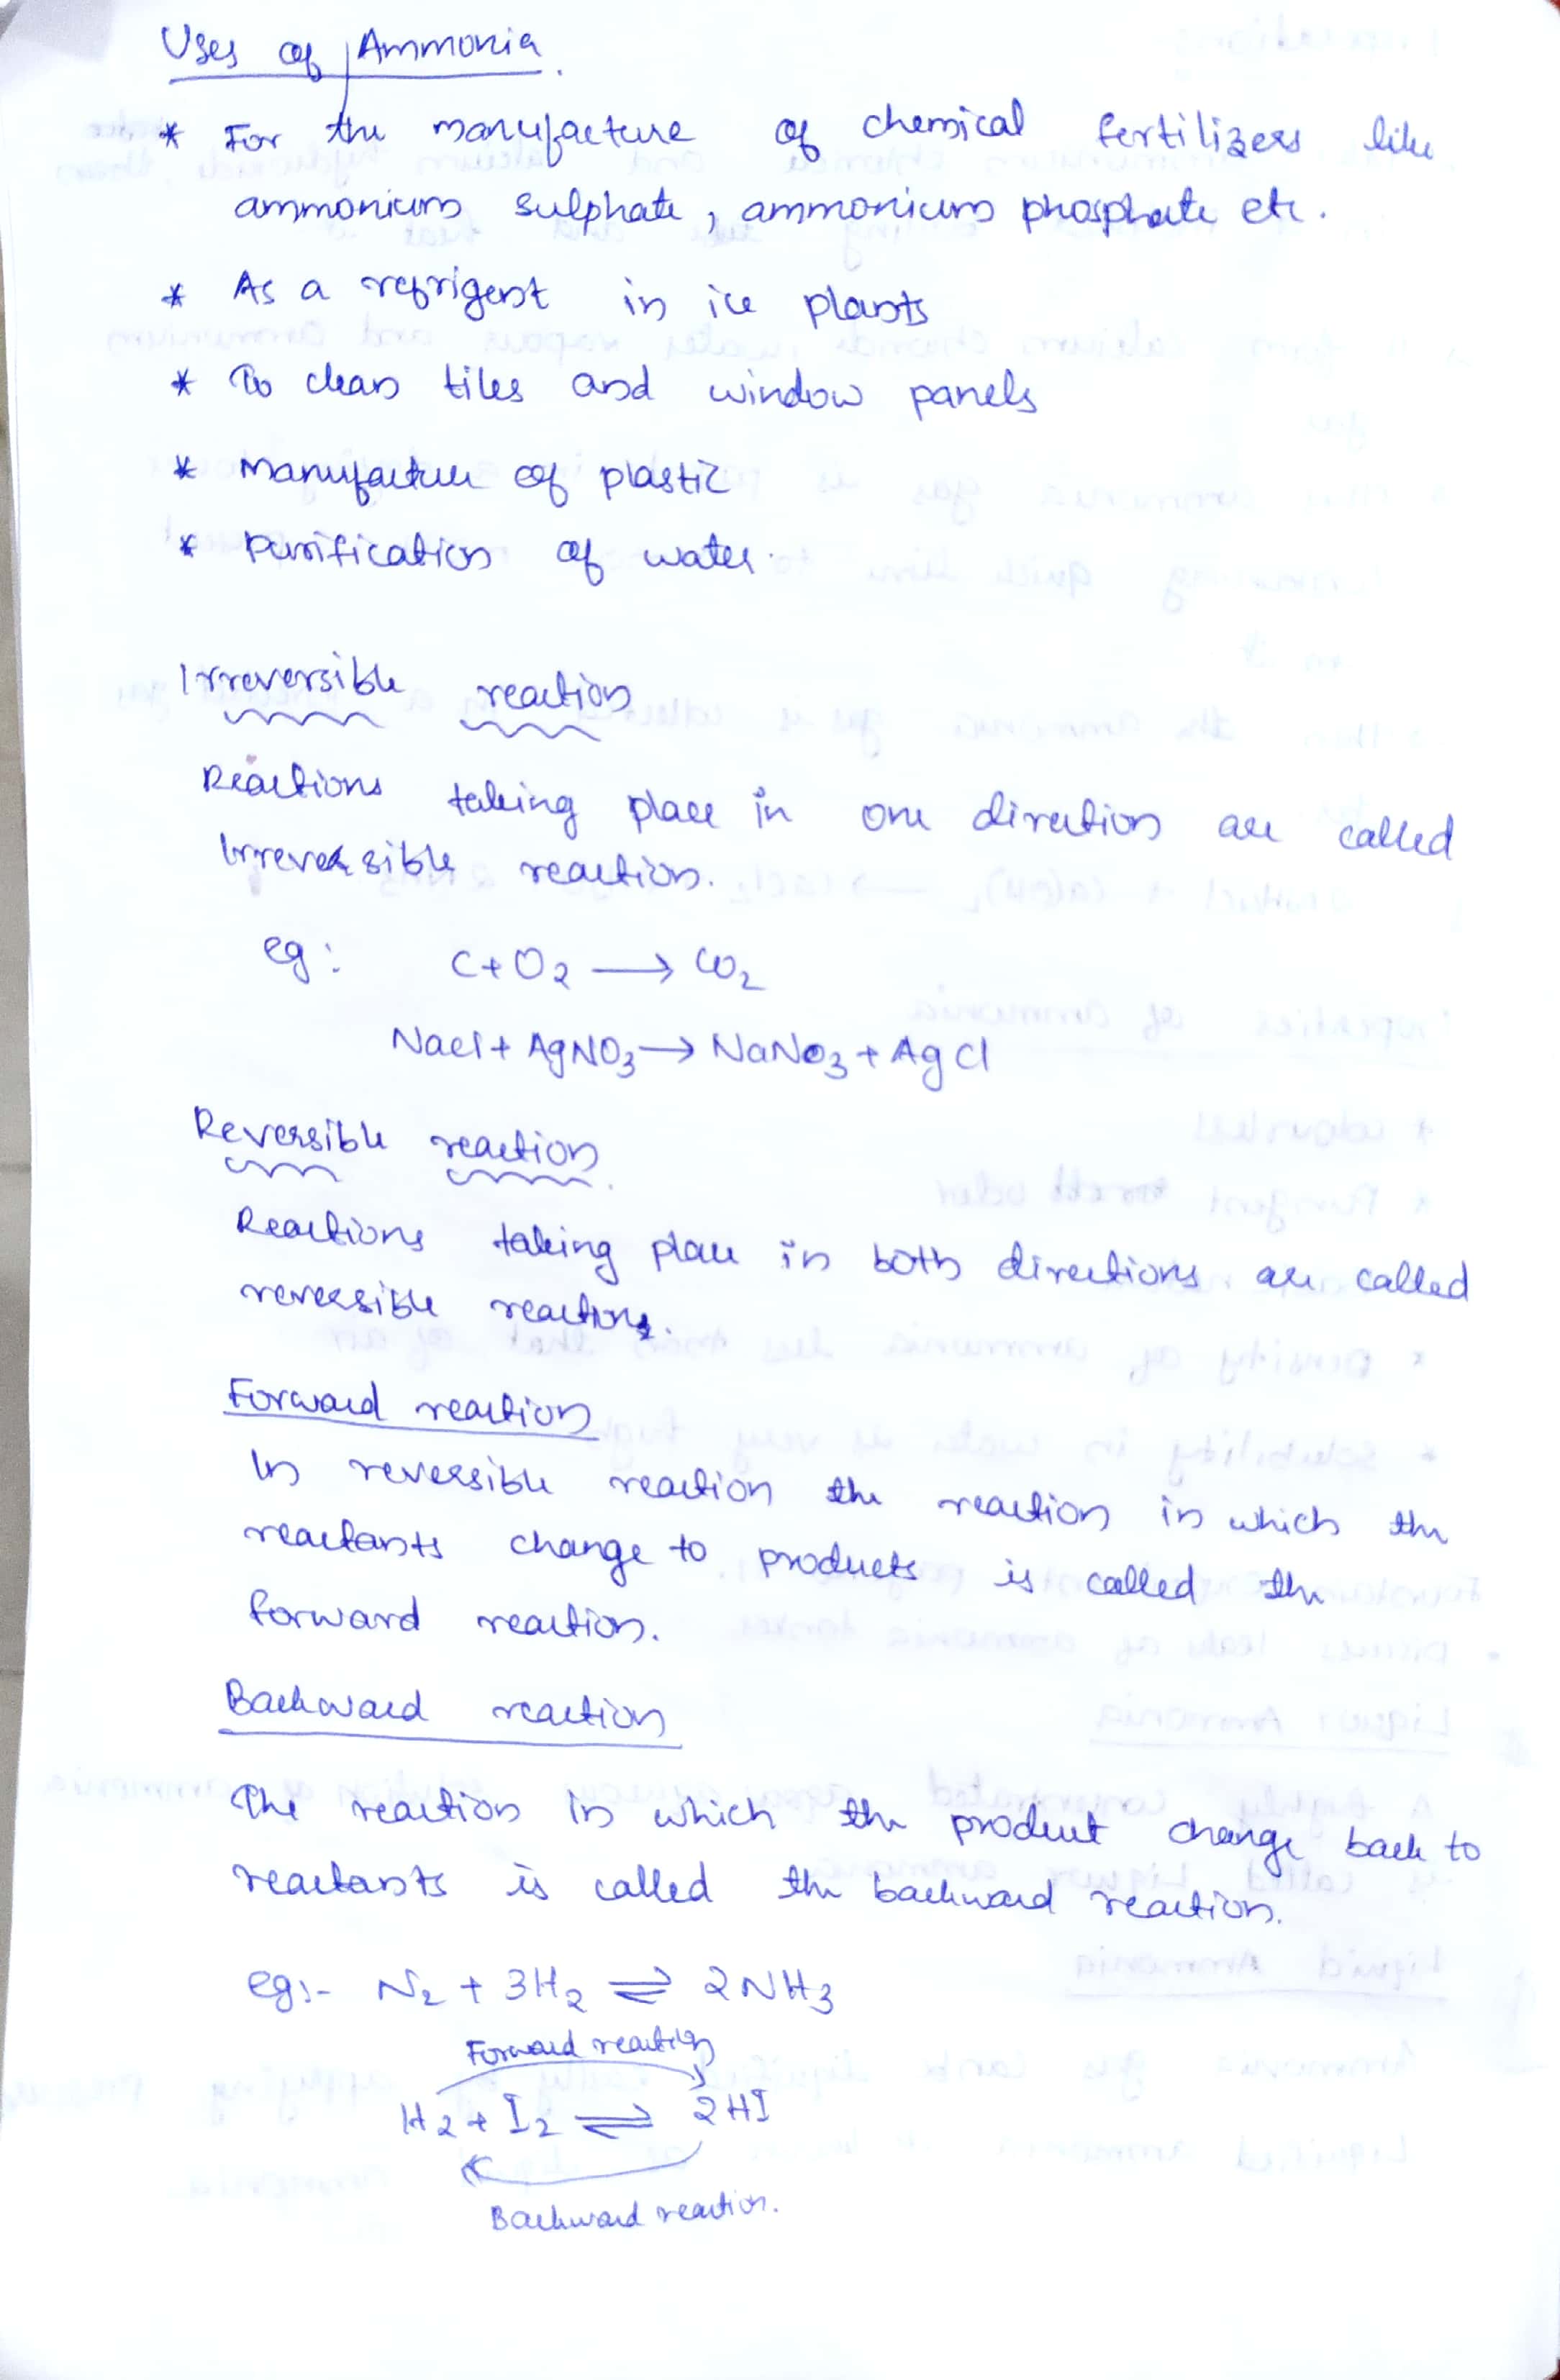 Uses of Ammonia.
* For the manufacture of chemical fertilizers like
ammonium sulphate, ammonium phosphate etc.
* As a refrigent in ice plants
* To clean tiles and window panels
* Manufacture of plastic
* Purification of water.
Irreversible reaction
Reactions taking place in one direction are called
Irreversible reaction.
eg: C + O2 → CO2
NaCl + AgNO3 → NaNO3 + AgCl
Reversible reaction.
Reactions taking place in both directions are called
reversible reactions.
Forward reaction
In reversible reaction the reaction in which the
reactants change to products is called the
forward reaction.
Backward reaction
The reaction in which the product change back to
reactants is called the backward reaction.
eg:- N2 + 3H2 ⇌ 2NH3
Forward reaction
H2 + I2 ⇌ 2HI
Backward reaction.